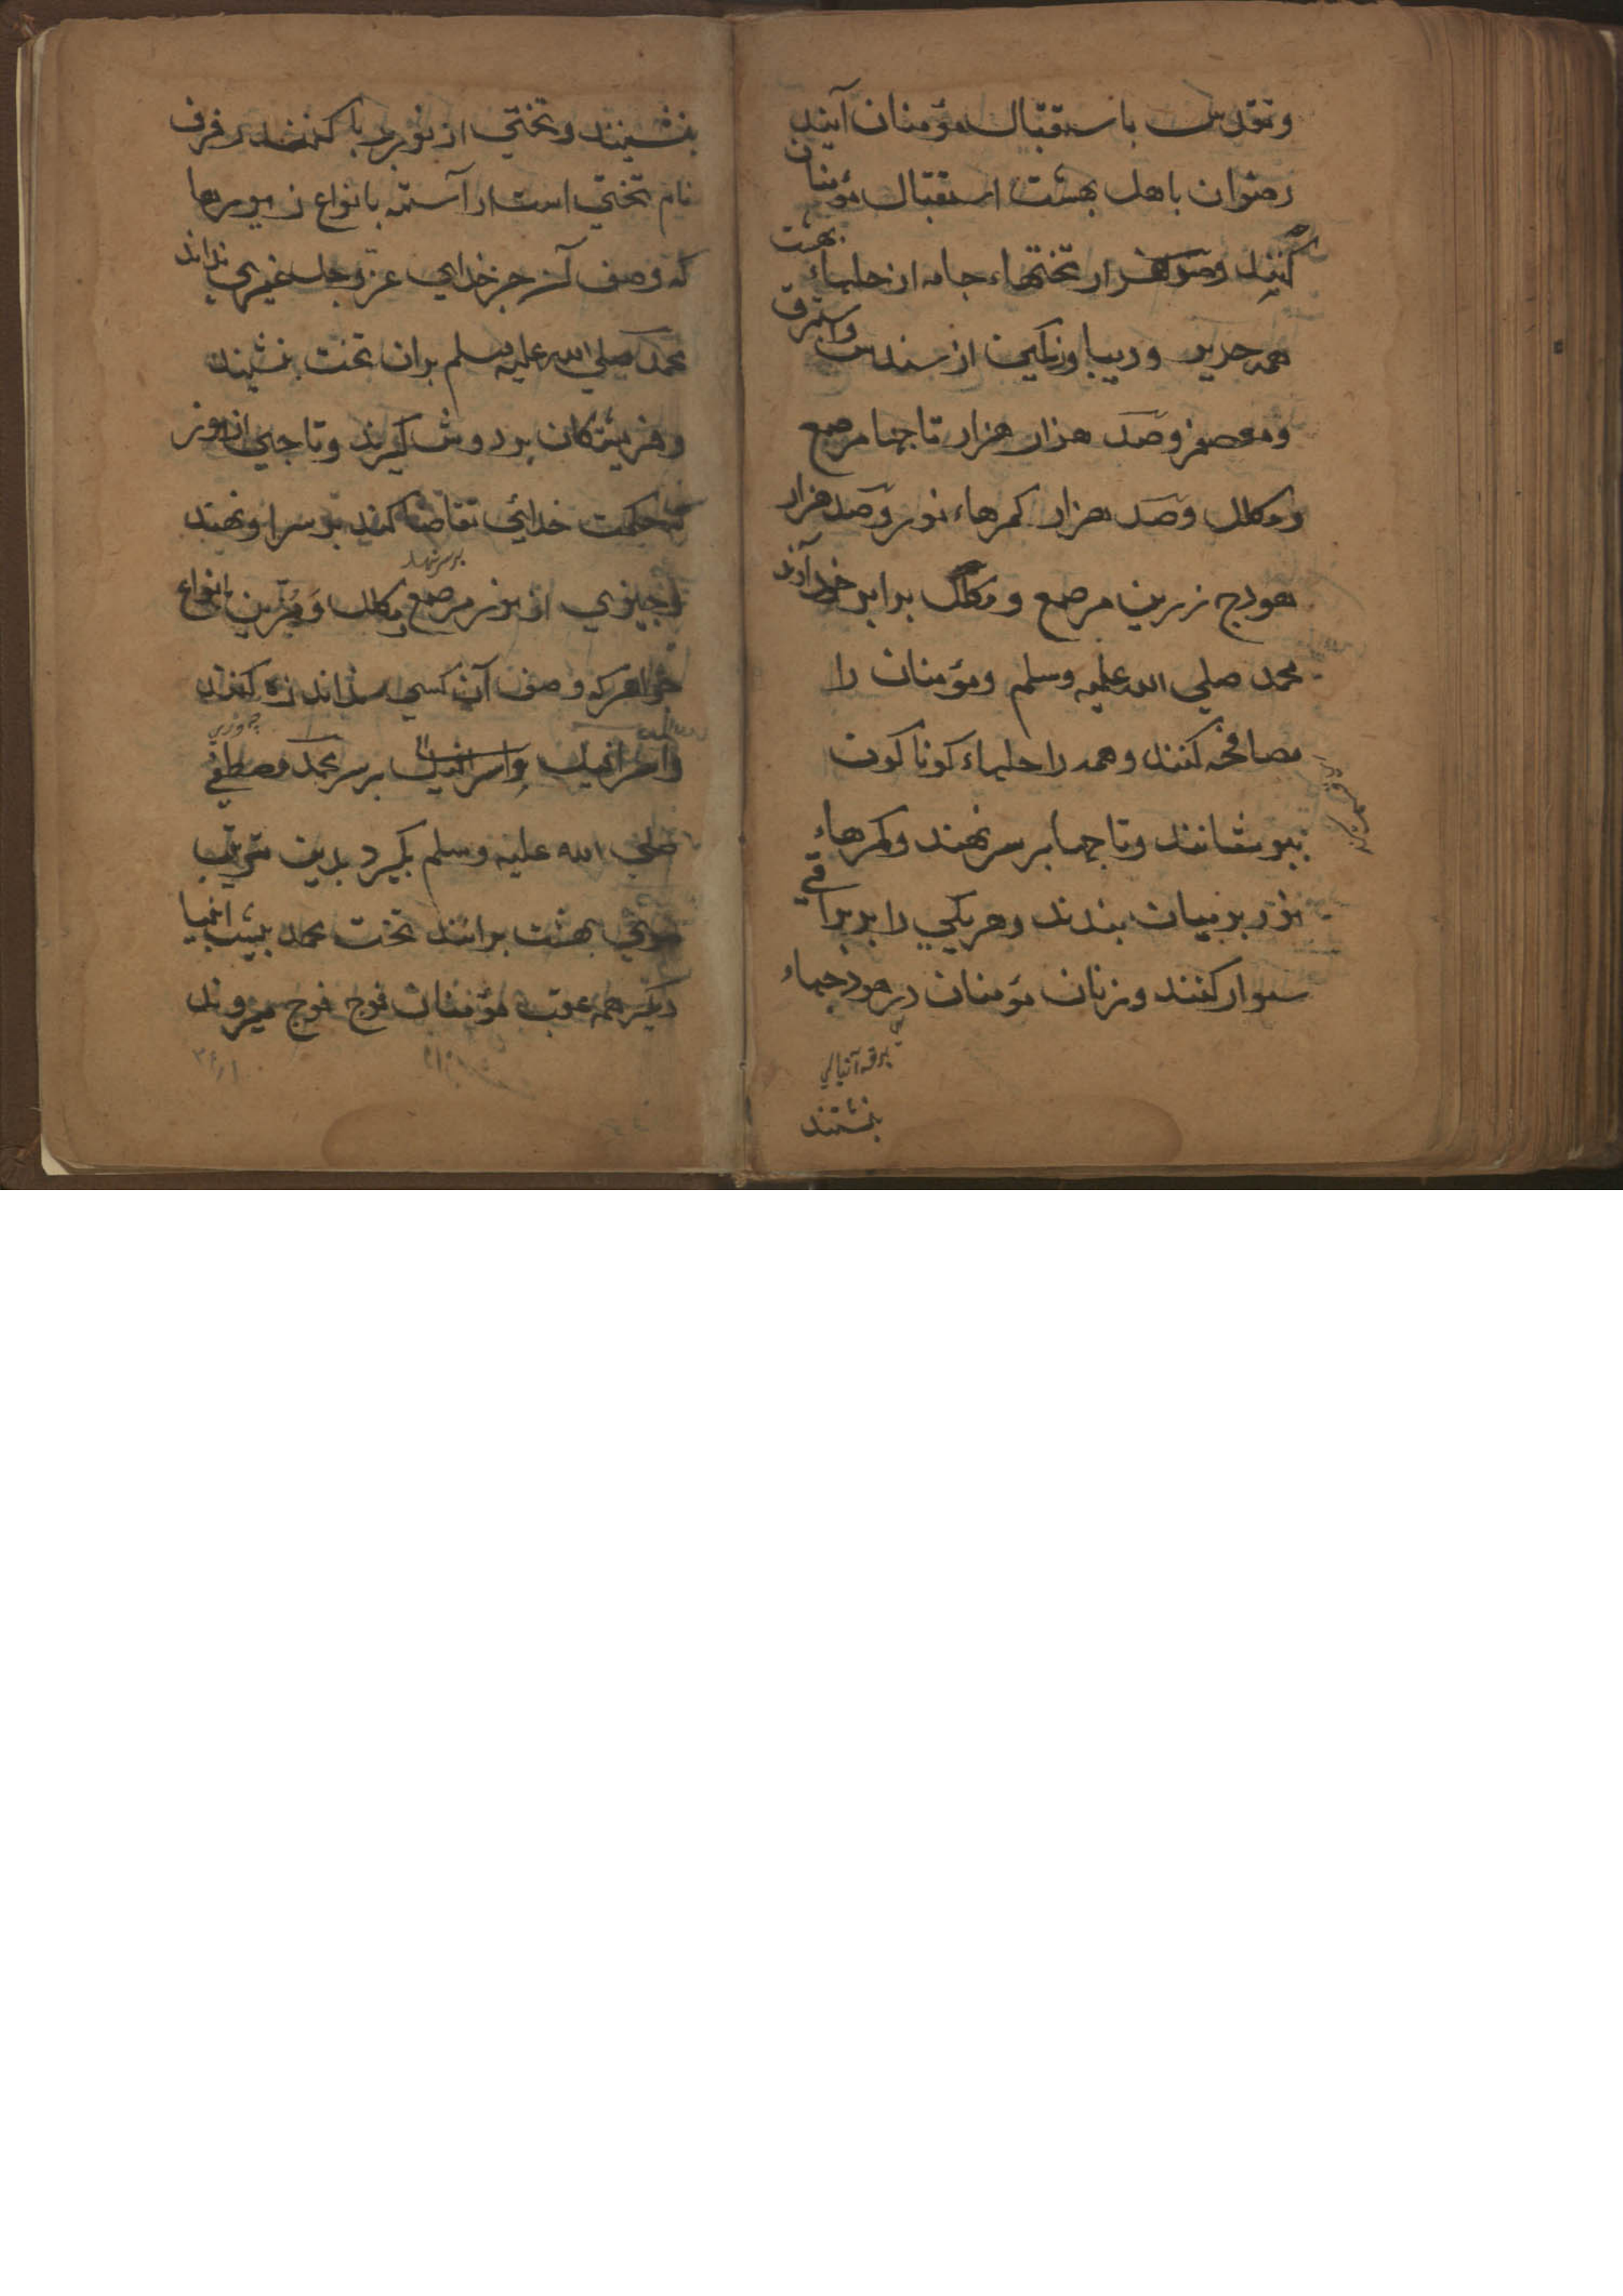 وتقدیس باستقبال مؤمنان آیند
رضوان باهل بهشت استقبال مؤمنان
کنند وصد هزار تختهاء جامه از حلهاء بهشت
همه حریر ودیبا ورنکین از سندس واستبرق
ومعصفر وصد هزار هزار تاجها مرصع
ومکلل وصد هزار کمرهاء نور وصد هزار
هودج زرین مرصع ومکلل برابر خود آرند
محمد صلی الله علیه وسلم ومؤمنان را
مصافحه کنند وهمه را حلهاء کوناکون
بپوشانند وتاجها بر سر نهند وکمرهاء
نور بر میان بندند وهریکی را بر براقی
سوار کنند وزنان مؤمنان در هودجهاء
بنشینند
بنشینند وتختی از نور برپا کنند رفرف
نام تختی است آراسته بانواع زیورها
که وصف آن جز خدای عز وجل غیری نداند
محمد صلی الله علیه وسلم بران تخت بنشیند
وفریشتکان بر دوش کیرند وتاجی از نور
که حکمت خدائی تقاضا کند بر سر او نهند
بر سر نهند
وچیزی از نور مرصع ومکلل ومزین بانواع
جواهر که وصف آن کسی اندازه کند
واسرافیل بر سر محمد مصطفی
صلی الله علیه وسلم بکیرد بدین ترتیب
سوی بهشت برانند تخت محمد پیش انبیا
دیکر همه عقب مؤمنان فوج فوج میروند